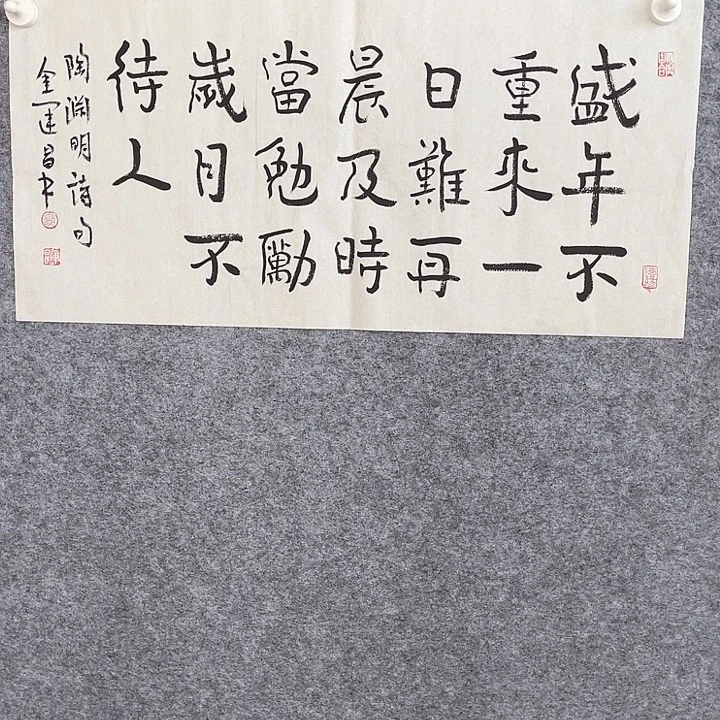 盛年不
重來一
日難再
晨及時
當勉勵
歲月不
待人
陶淵明詩句
金運昌书